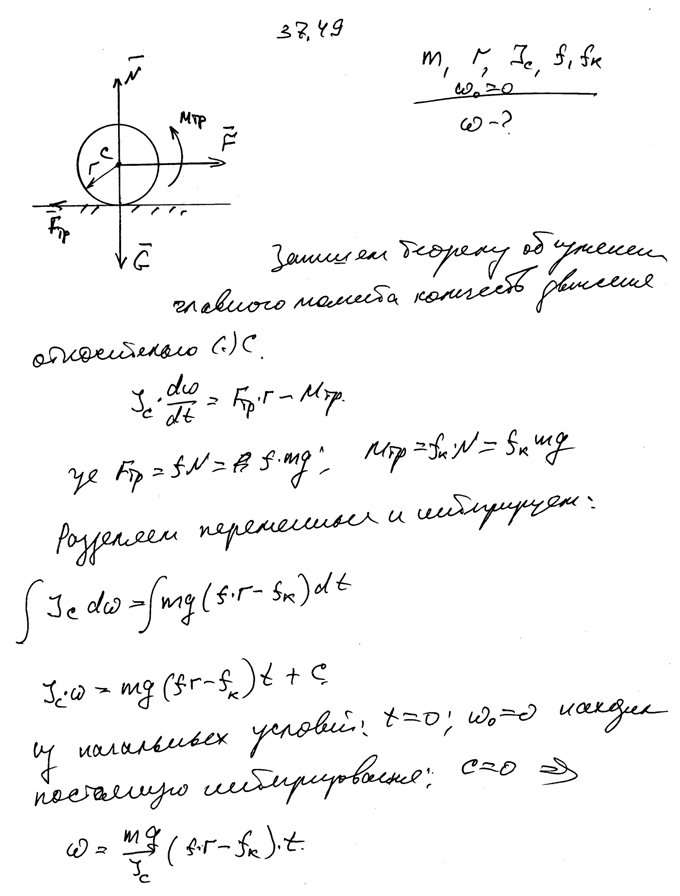 37.49
m, r, Jc, f, fк
ω₀=0
ω-?
N̄
Mтр
C
r
F̄
F̄тр
Ḡ
Запишем теорему об изменен.
главного момента количеств движения
относительно (·) C.
Jc · dω/dt = Fтр·r − Mтр.
где Fтр = fN = f·mg; Mтр = fк·N = fк mg
Разделяем переменные и интегрируем:
∫ Jc dω = ∫ mg (f·r − fк) dt
Jc·ω = mg (f·r − fк) t + C
из начальных условий: t=0; ω₀=0 находим
постоянную интегрирования: c=0 ⇒
ω = mg/Jc (f·r − fк)·t.